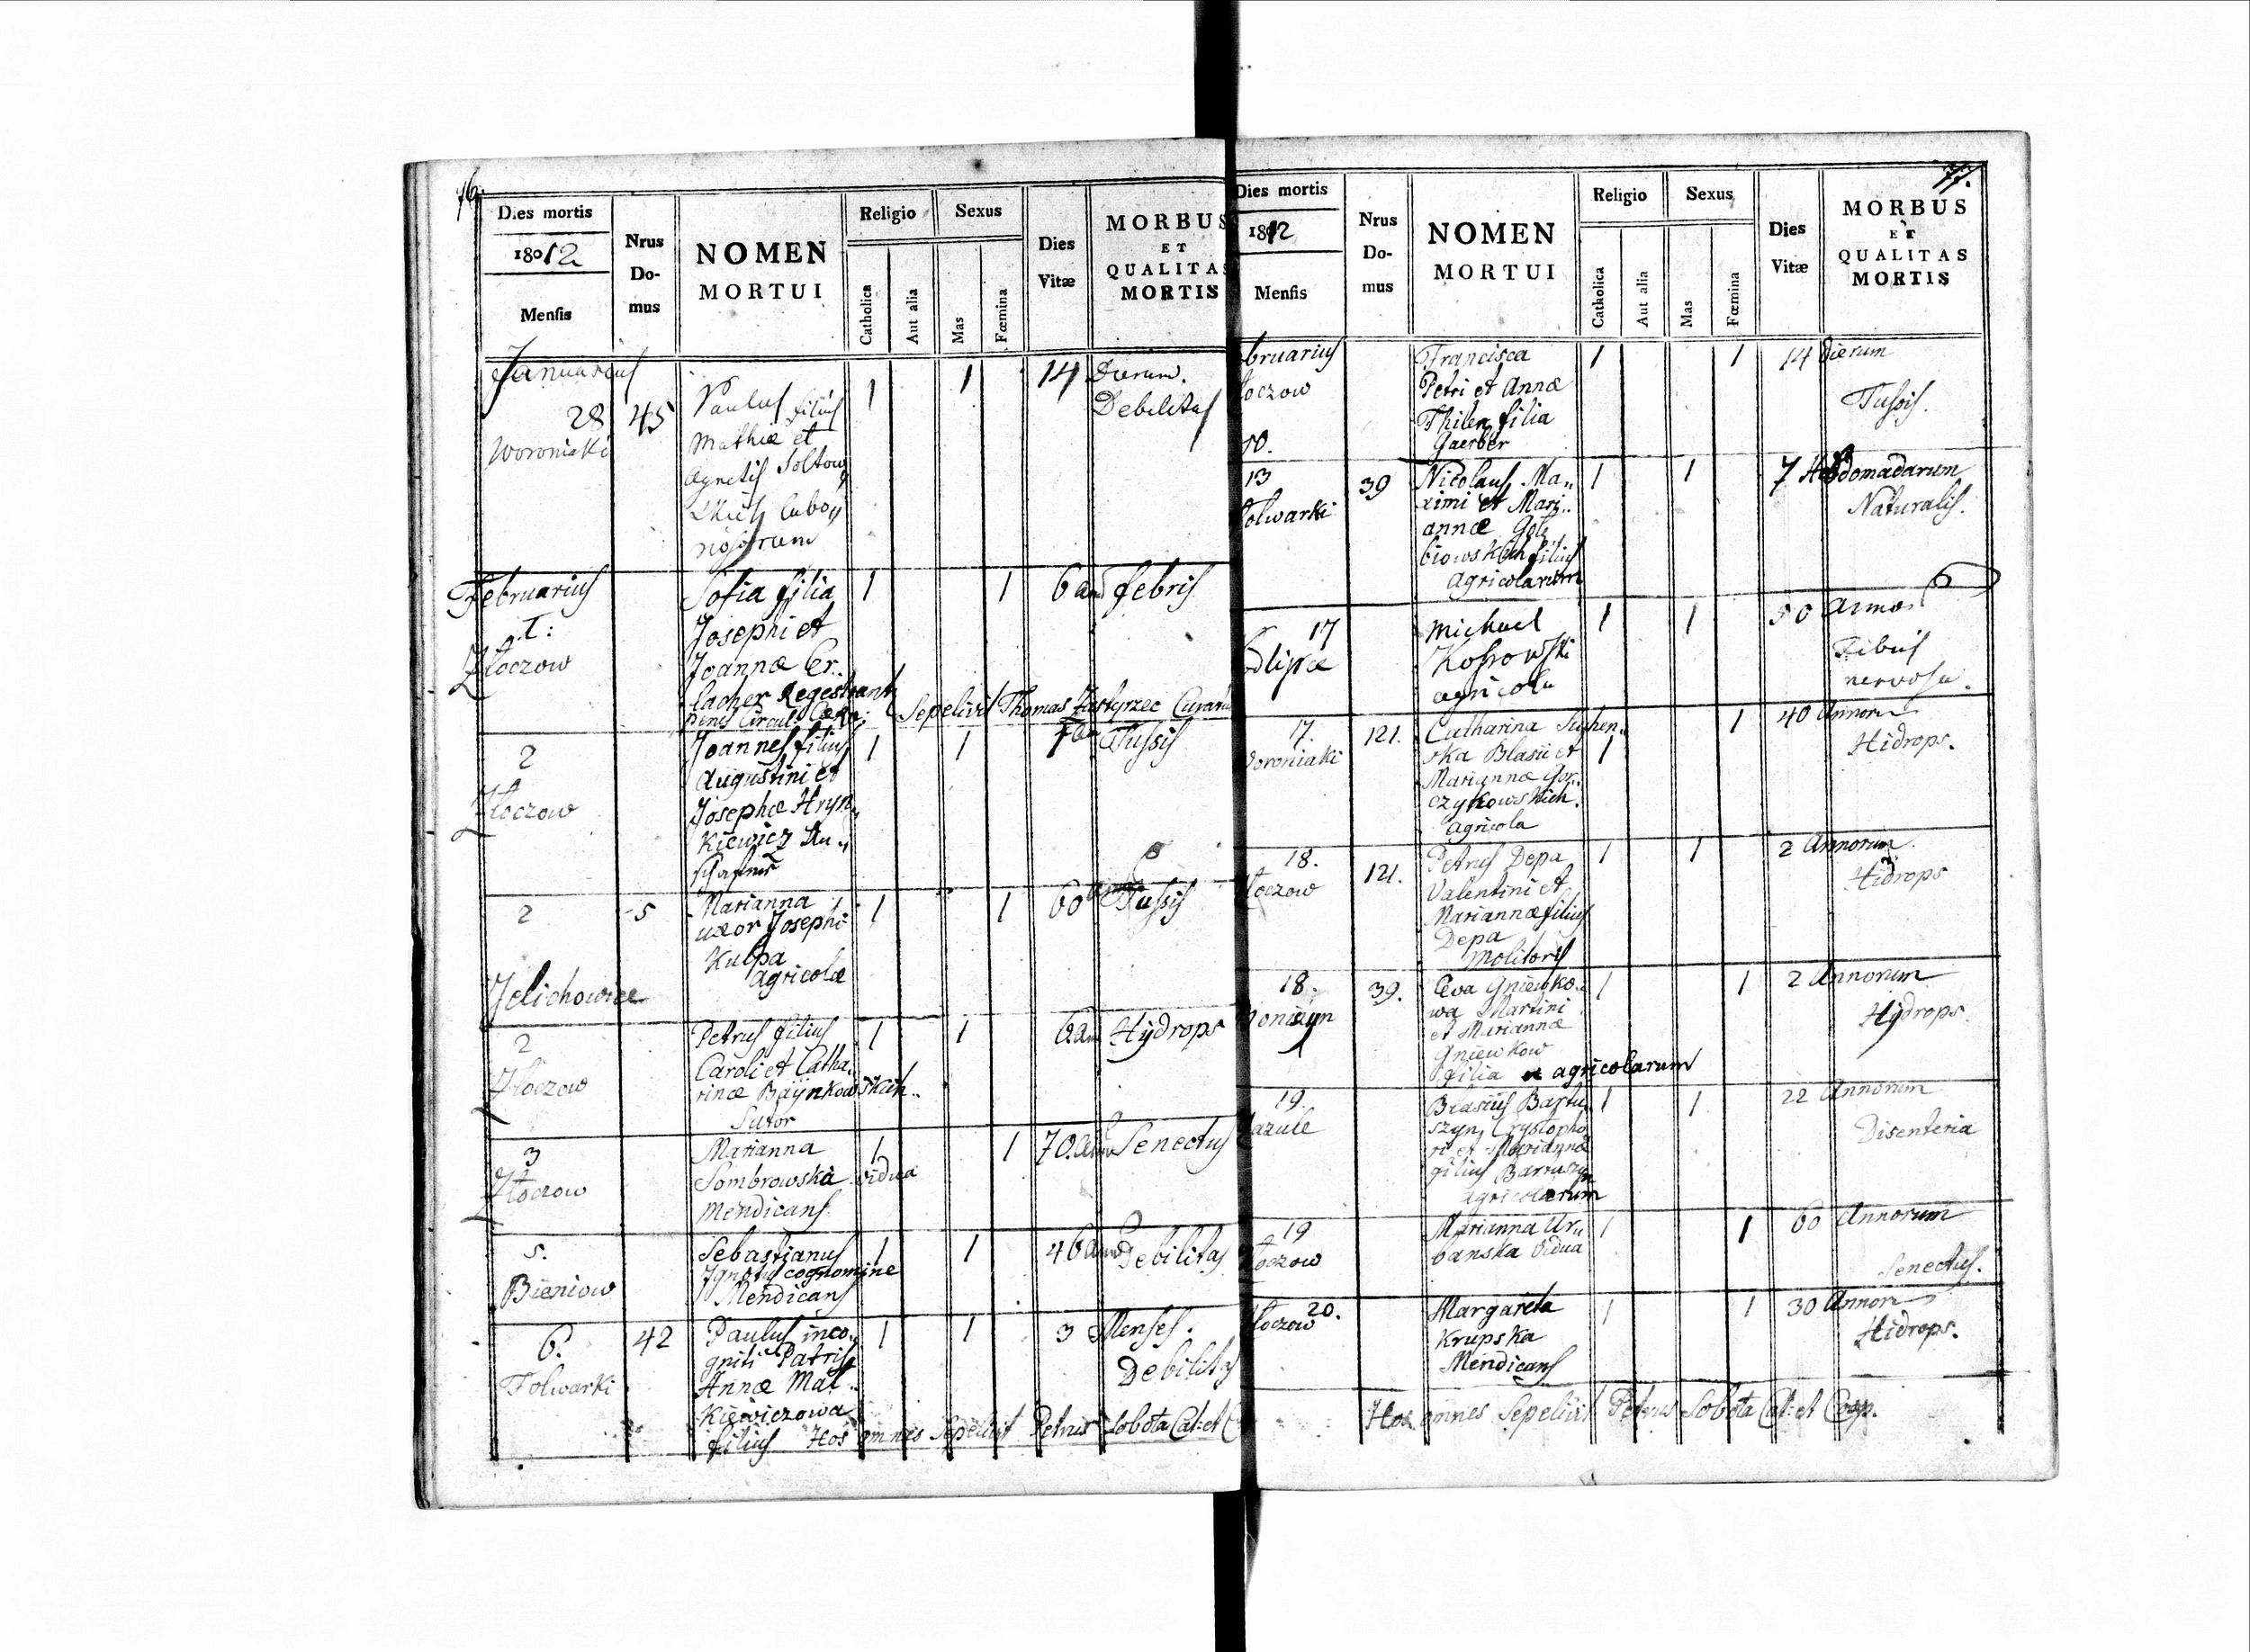 76.
Dies mortis
18012
Mensis
Nrus
Do-
mus
NOMEN
MORTUI
Religio
Catholica
Aut alia
Sexus
Mas
Fœmina
Dies
Vitæ
MORBUS
ET
QUALITAS
MORTIS
Januarius
28 45
Woroniaki
Paulus filius
Mathiæ et
Agnetis Soltow
skich
1 1 14 Dierum.
Debilitas
Februarius
1:
Złoczow
Sofia filia
Josephi et
Joannæ Er..
lacher Regestrant
penes Circuli
1 1 6 an febris
Sepelivit Thomas Zastyrzec
2
Złoczow
Joannes filius
Augustini et
Josephæ Hryn„
kiewicz
1 1 Tussis
2 5
Jelichowice
Marianna
uxor Josephi
Kulpa
Agricolæ
1 1 60 Tussis
2
Złoczow
Petrus filius
Caroli et Catha„
rinæ Baÿnkowskich..
Sutor
1 1 6 an Hydrops
3
Złoczow
Marianna
Sombrowska vidua
Mendicans
1 1 70. Senectus
5.
Bieniow
Sebastianus
Ignotus cognomine
Mendicans
1 1 46 Debilitas
6. 42
Folwarki
Paulus inco„
gniti Patris
Annæ Mal„
kiewiczowa
filius
1 1 3 Menses.
Debilitas
Hos omnes Sepelivit Petrus Sobota Cat: et C
77.
Dies mortis
1812
Mensis
Nrus
Do-
mus
NOMEN
MORTUI
Religio
Catholica
Aut alia
Sexus
Mas
Fœmina
Dies
Vitæ
MORBUS
ET
QUALITAS
MORTIS
bruarius
łoczow
10.
Francisca
Petri et Annæ
Thilen filia
Gaerber
1 1 14 Dierum
Tussis.
13 39
olwarki
Nicolaus Ma„
ximi et Mari„
annæ Goł„
biowskich filius
Agricolarum
1 1 7 Hebdomadarum
Naturalis.
17
odlipce
Michael
Kossowski
agricola
1 1 50 Annos
Febris
nervosa.
17. 121.
oroniaki
Catharina Suchen„
ska Blasii et
Mariannæ Gor„
czykowskich.
Agricola
1 1 40 Annoru
Hidrops.
18. 121.
łoczow
Petrus Depa
Valentini et
Mariannæ filius
Depa
Molitoris
1 1 2 Annorum
Hidrops
18. 39.
Eva Gniewko„
wa Martini
et Mariannæ
Gniewkow
filia agricolarum
1 1 2 Annorum
Hydrops
19.
azule
Blasius Bartu„
szyn, Crystopho
ri et Marianna
filius Bartuszyn
Agricolarum
1 1 22 Annorum
Disenteria
19
łoczow
Marianna Ur„
banska vidua
1 1 60 Annorum
Senectus.
20.
łoczow
Margareta
Krupska
Mendicans
1 1 30 Annoru
Hidrops.
Hos omnes Sepelivit Petrus Sobota Cat: et Coop.